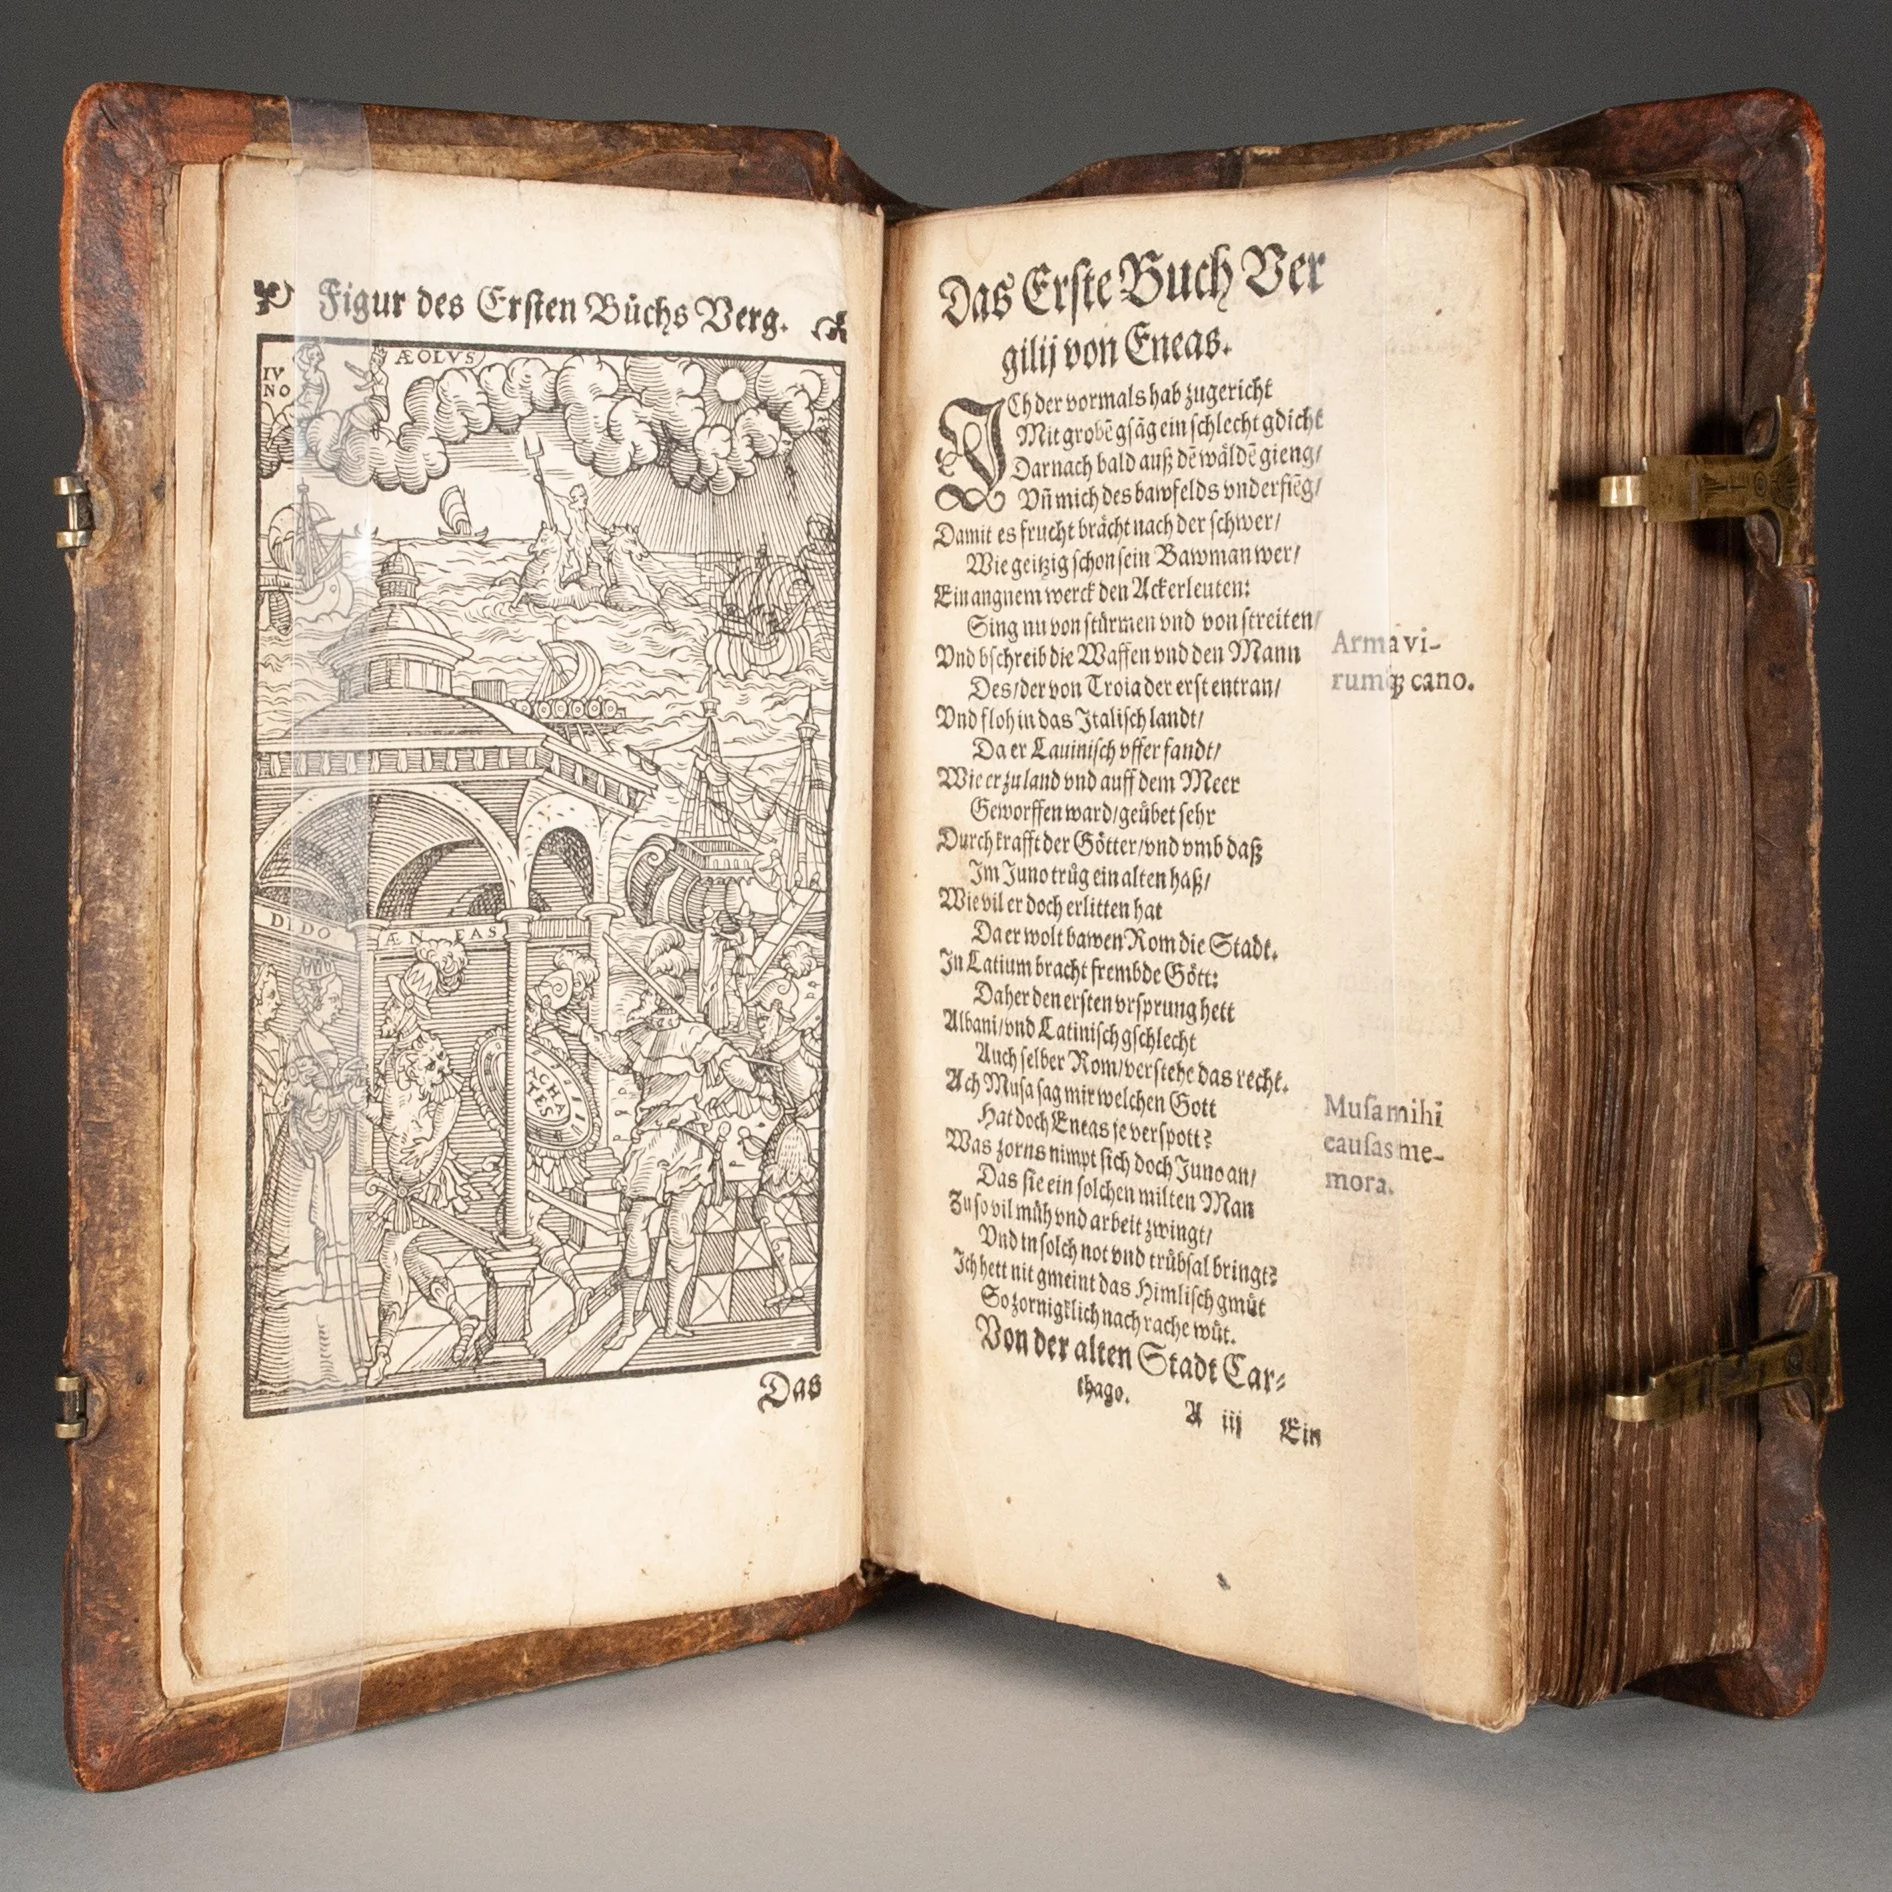 Figur des Ersten Bůchs Verg.
ÆOLVS
IV
NO
DIDO
ÆN EAS
ACHA
TES
Das
Das Erste Buch Ver
gilij von Eneas.
ICh der vormals hab zugericht
Mit grobẽ gsãg ein schlecht gdicht
Darnach bald auß dẽ wäldẽ gieng/
Vñ mich des bawfelds vnderfieg/
Damit es frucht brächt nach der schwer/
Wie geitzig schon sein Bawman wer/
Ein angnem werck den Ackerleuten:
Sing nu von stürmen vnd von streiten/
Vnd bschreib die Waffen vnd den Mann
Des/der von Troia der erst entran/
Vnd floh in das Italisch landt/
Da er Lauinisch vffer fandt/
Wie er zu land vnd auff dem Meer
Geworffen ward/geübet sehr
Durch krafft der Götter/vnd vmb daß
Im Juno trůg ein alten haß/
Wie vil er doch erlitten hat
Da er wolt bawen Rom die Stadt.
In Latium bracht frembde Gött:
Daher den ersten vrsprung hett
Albani/vnd Latinisch gschlecht
Auch selber Rom/verstehe das recht.
Ach Musa sag mir welchen Gott
Hat doch Eneas je verspott?
Was zorns nimpt sich doch Juno an/
Das sie ein solchen milten Man
Zu so vil müh vnd arbeit zwingt/
Vnd in solch not vnd trübsal bringt?
Ich hett nit gmeint das Himlisch gmüt
So zornigklich nach rache wüt.
Von der alten Stadt Car⸗
thago.
A iij Ein
Arma vi-
rumq́ꝫ cano.
Musa mihi
causas me-
mora.